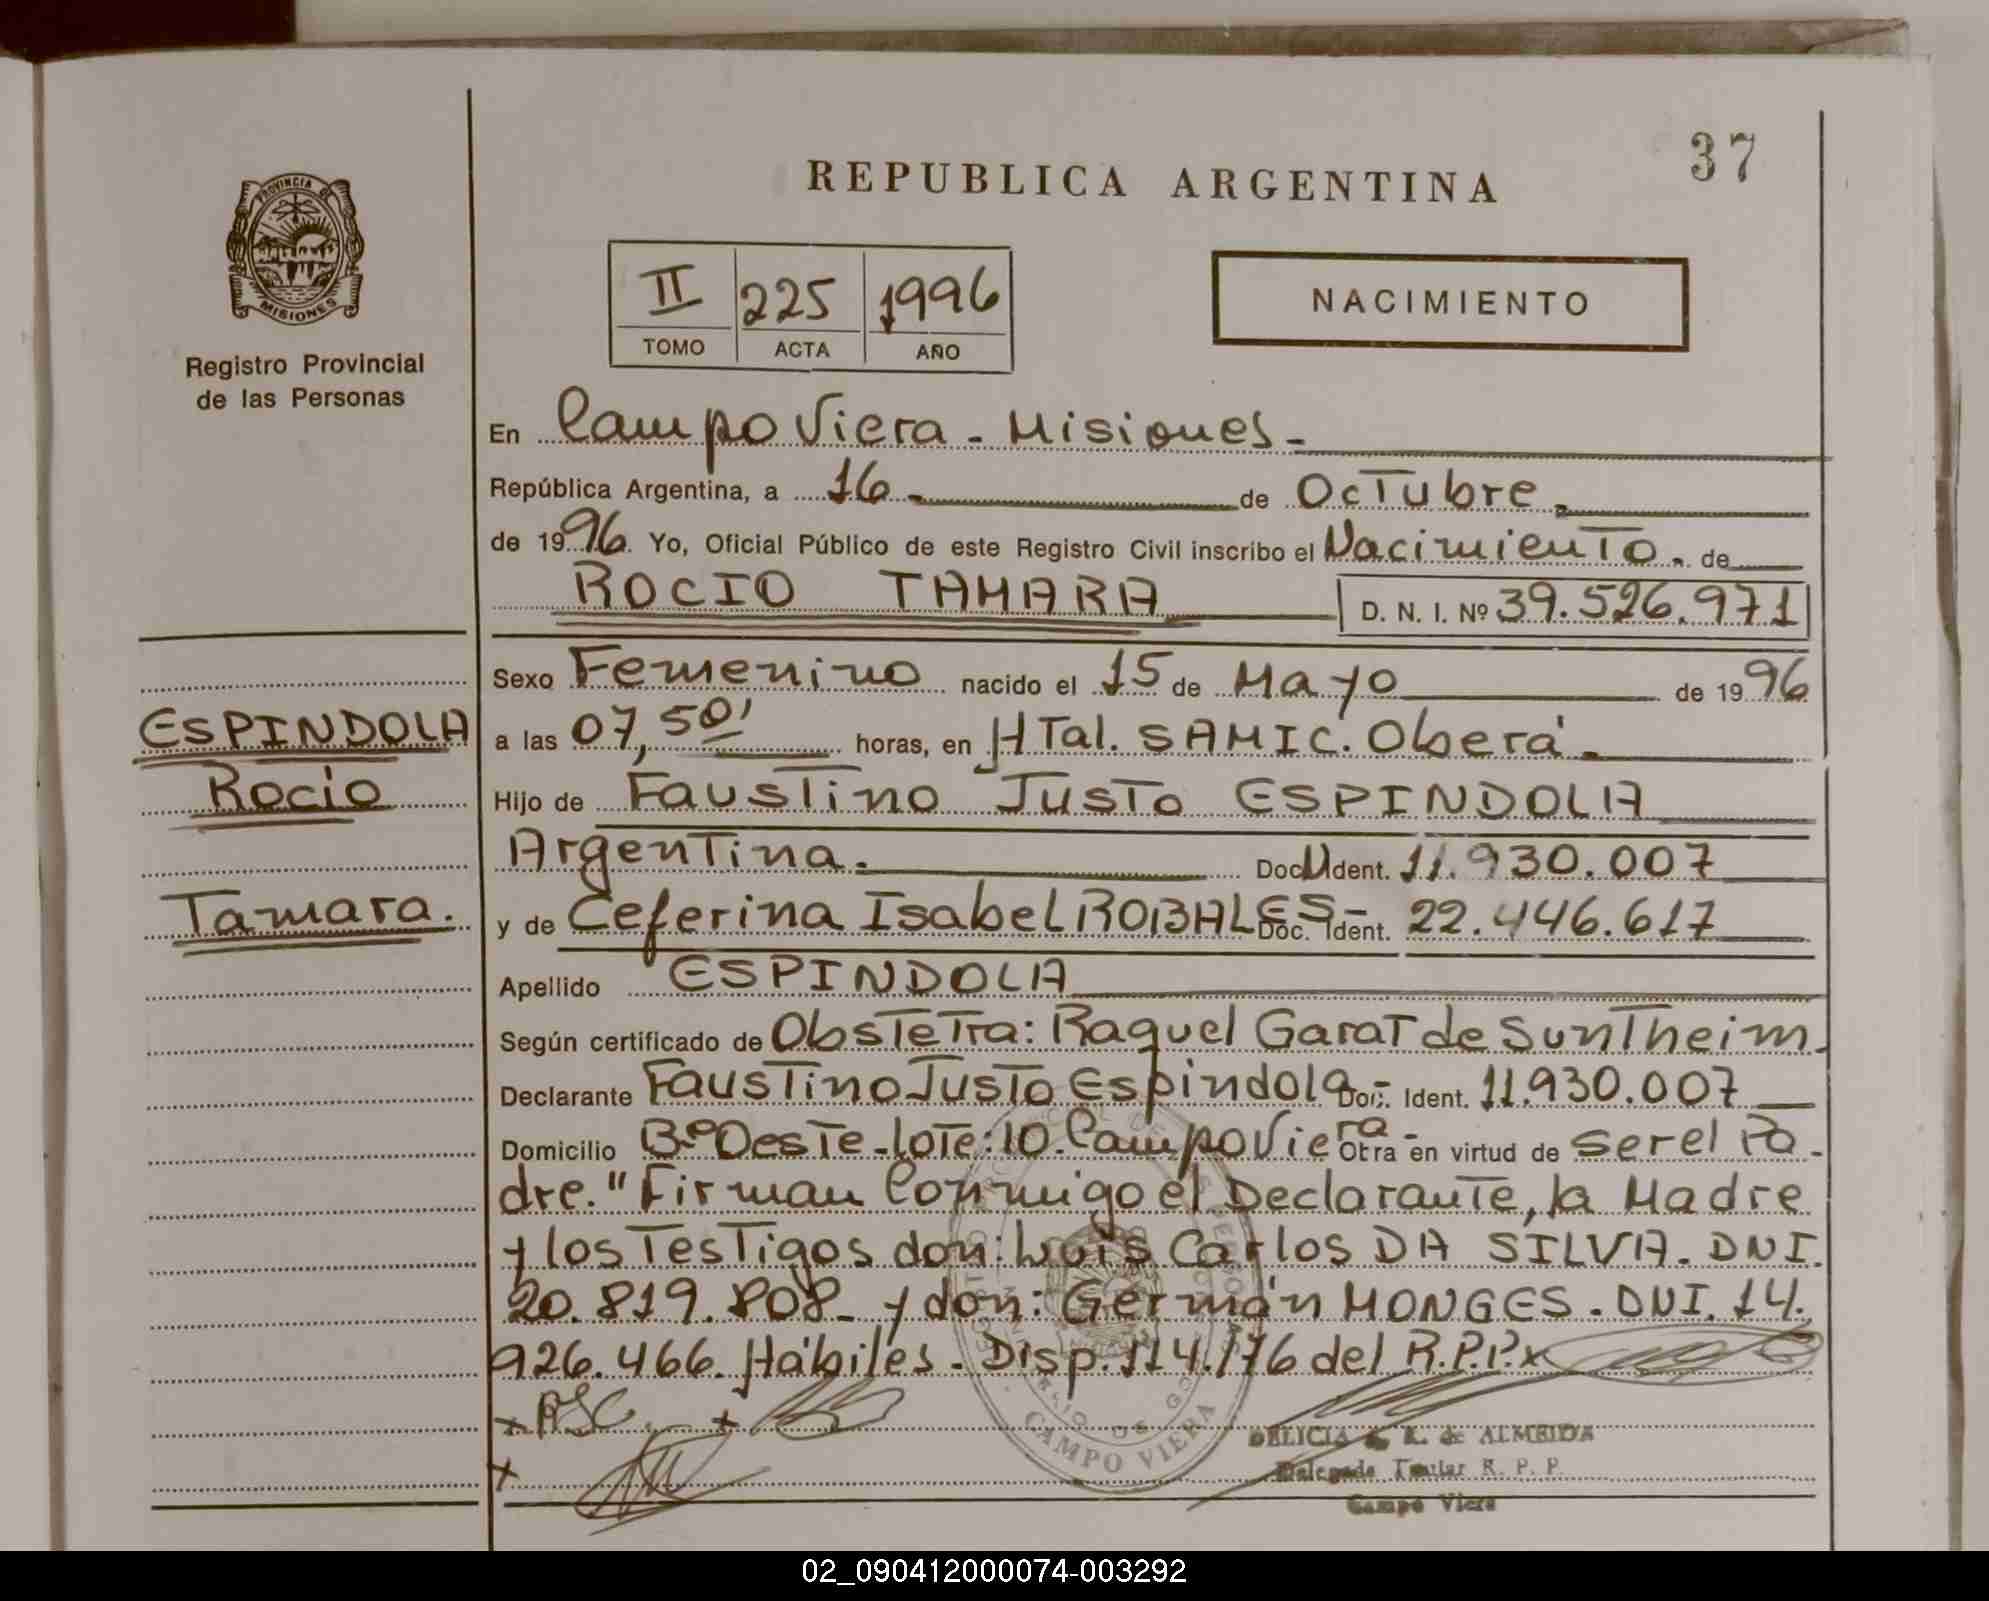 37
REPUBLICA ARGENTINA
PROVINCIA DE
MISIONES
Registro Provincial
de las Personas
II 225 1996
TOMO ACTA AÑO
NACIMIENTO
En Campo Viera - Misiones -
República Argentina, a 16 - de Octubre
de 1996. Yo, Oficial Público de este Registro Civil inscribo el Nacimiento. de
ROCIO TAMARA D. N. I. Nº 39.526.971
Sexo Femenino nacido el 15 de Mayo de 1996
ESPINDOLA
a las 07,50' horas, en HTal. SAMIC. Oberá -
Rocio
Hijo de Faustino Justo ESPINDOLA
Argentina. Doc U Ident. 11.930.007
Tamara.
y de Ceferina Isabel ROBALES - Doc. Ident. 22.446.617
Apellido ESPINDOLA
Según certificado de Obstetra: Raquel Garat de Suntheim.
Declarante Faustino Justo Espindola - Doc. Ident. 11.930.007
Domicilio Bº Oeste - lote: 10. Campo Viera - Otra en virtud de ser el Pa-
dre. "Firman Conmigo el Declarante, la Madre
y los Testigos don: Luis Carlos DA SILVA. DNI.
20.819.808 - y don: Germán MONGES. DNI. 14.
926.466. Hábiles. Disp. 114/76 del R.P.P. x
CAMPO VIERA
DELICIA de ALMEIDA
Delegada Titular R. P. P.
Campo Viera
02_090412000074-003292